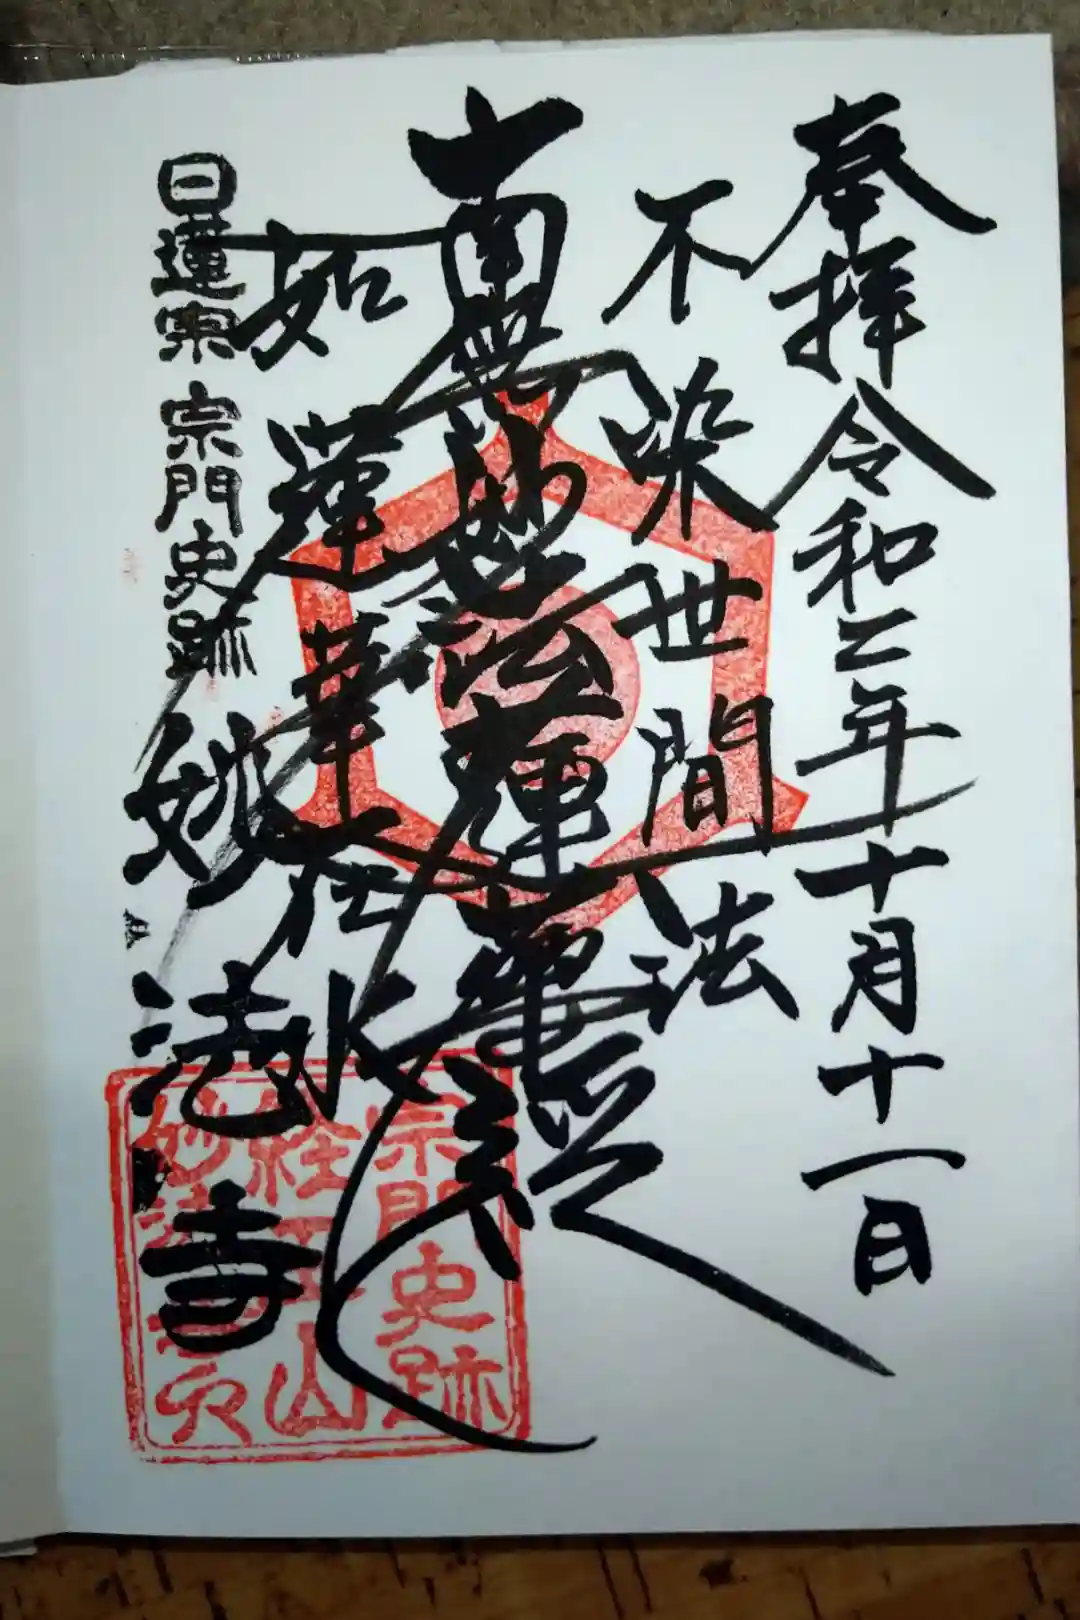 奉拝 令和二年十月十一日
不染世間法
南無妙法蓮華経
如蓮華在水
日蓮宗 宗門史跡
妙法寺
宗門史跡
山
妙法